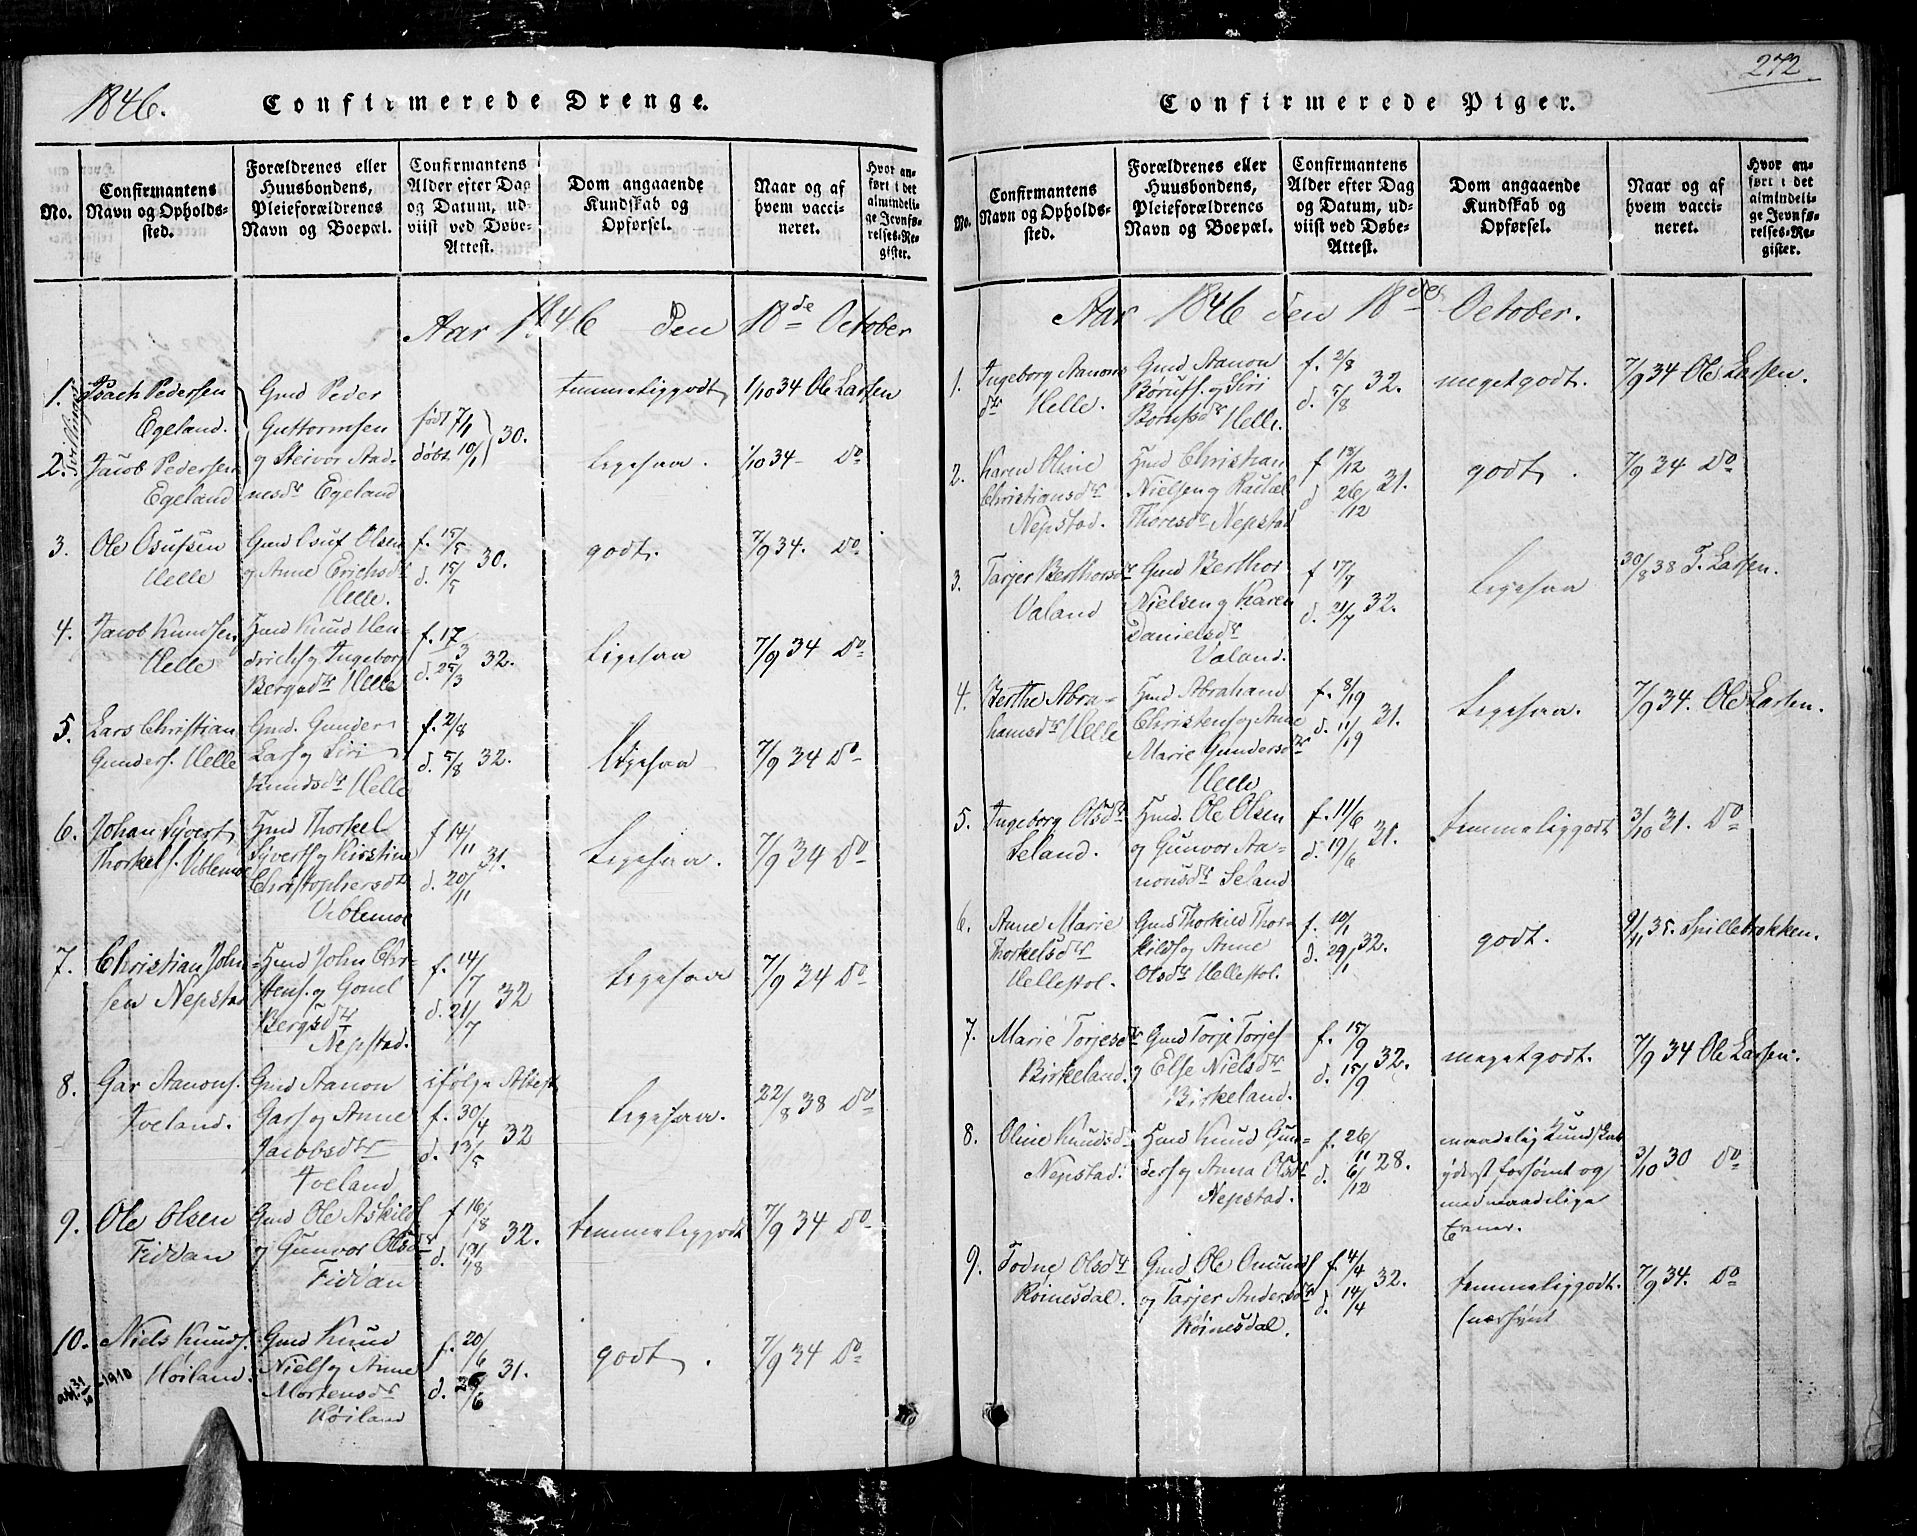 1846.
Confirmerede Drenge.
No.
Confirmantens Navn og Opholds-sted.
Forældrenes eller Huusbondens, Pleieforældrenes Navn og Boepæl.
Confirmantens Alder efter Dag og Datum, ud-viist ved Døbe-Attest.
Dom angaaende Kundskab og Opførsel.
Naar og af hvem vacci-neret.
Hvor an-ført i det almindeli-ge Jevnfø-relses-Re-gister.
Aar 1846 den 18de October
1. Isach Pedersen
Egeland.
Tvillinger
2. Jacob Pedersen
Egeland
Gmd Peder
Guttormsen
og Steivor Aad-
nesdr Egeland
født 7/1
døbt 10/1 30.
temmeliggodt 1/10 34 Ole Larsen
Ligesaa. 1/10 34 - Do
3. Ole Osufsen
Helle
Gmd Osuf Olsen
og Anne Erichsdr
Helle.
f. 15/5
d. 15/5 30.
godt. 7/9 34. Do
4. Jacob Knudsen
Helle
Hmd Knud Hen-
drichs og Ingeborg
Bergsdr Helle
f. 17/3
d. 25/3 32.
Ligesaa 7/9 34 Do
5. Lars Christian
Gunders. Helle
Gmd. Gunder
Lars og Siri
Knudsdr Helle
f. 2/8
d. 5/8 32.
Ligesaa 7/9 34 Do
6. Johan Syvert
Thorkels. Viblemoe
Hmd Thorkel
Syverts og Kirstine
Christophersdr
Viblemoe
f 14/11
d. 20/11 31.
Ligesaa. 7/9 34 Do
7. Christian John
sen Nepstad
Hmd John Chri-
stens. og Gonel
Bergsdr
Nepstad.
f. 14/7
d. 21/7 32
Ligesaa 7/9 34 Do
8. Gar Aanons.
Tveland.
Gmd Aanon
Gars og Anne
Jacobsdr
Tveland
ifølge Attest
f. 30/4
d. 13/5 32
Ligesaa. 22/8 38 Do
9. Ole Olsen
Fiddan
Gmd Ole Askilds
og Gunvor Olsdr
Fiddan
f 16/8
d. 19/8 32.
temmeliggodt 7/9 34 Do
10. Niels Knuds.
Høiland.
1910
Gmd Knud
Niels og Anne
Mortensdr
Høiland
f. 20/6
d. 26/6 31.
godt. 7/9 34 Do
272
Confirmerede Piger.
No.
Confirmantens Navn og Opholds-sted.
Forældrenes eller Huusbondens, Pleieforældrenes Navn og Boepæl.
Confirmantens Alder efter Dag og Datum, ud-viist ved Døbe-Attest.
Dom angaaende Kundskab og Opførsel.
Naar og af hvem vacci-neret.
Hvor an-ført i det almindeli-ge Jevnfø-relses-Re-gister.
Aar 1846 den 18de October.
1. Ingeborg Aanons
dtr Helle.
Gmd Aanon
Børufs. og Siri
Børufsdr Helle.
f. 2/8
d. 5/8 32.
megetgodt. 7/9 34 Ole Larsen.
2. Karen Oline
Christiansdr
Nepstad.
Hmd Christian
Nielsen og Rachel
Thoresdr Nepstad
f 13/12
d 26/12 31.
godt. 7/9 34 Do
3. Tarjer Berthorsdr
Valand
Gmd Berthor
Nielsen og Karen
Danielsdr
Valand.
f 17/7
d. 21/7 32.
Ligesaa 30/8 38 T. Larsen.
4. Berthe Abra-
hamsdr Helle
Hmd Abraham
Christens og Anne
Marie Gundersdr
Helle
f. 8/19
d. 11/19 31.
Ligesaa. 7/9 34. Ole Larsen.
5. Ingeborg Olsdr
Seland.
Hmd. Ole Olsen
og Gunvor Aa-
nonsdr Seland
f. 11/6
d. 19/6 31.
temmeliggodt 3/10 31. Do
6. Anne Marie
Thorkelsdr
Hellestol.
Gmd Thorkild Thor-
kilds og Anne
Olsdr Hellestol.
f. 10/1
d. 29/1 32.
godt. 9/11 35.
7. Marie Torjesdr
Birkeland.
Gmd Torje Torjes
og Else Nielsdr
Birkeland.
f. 15/9
d. 15/9 32.
megetgodt. 7/9 34 Ole Larsen.
8. Oline Knudsdr
Nepstad.
Hmd Knud Gun-
ders og Anna Olsdr
Nepstad.
f. 26/11
d. 6/12 28.
maadelig Kundskab
yderst forsømt og
med maadelige
Evner.
3/10 30 Do
9. Todne Olsdr
Røinesdal.
Gmd Ole Omunds
og Tarjer Andersdr
Røinesdal.
f. 4/4
d. 14/4 32.
temmeliggodt.
nærsynt
7/9 34. Do